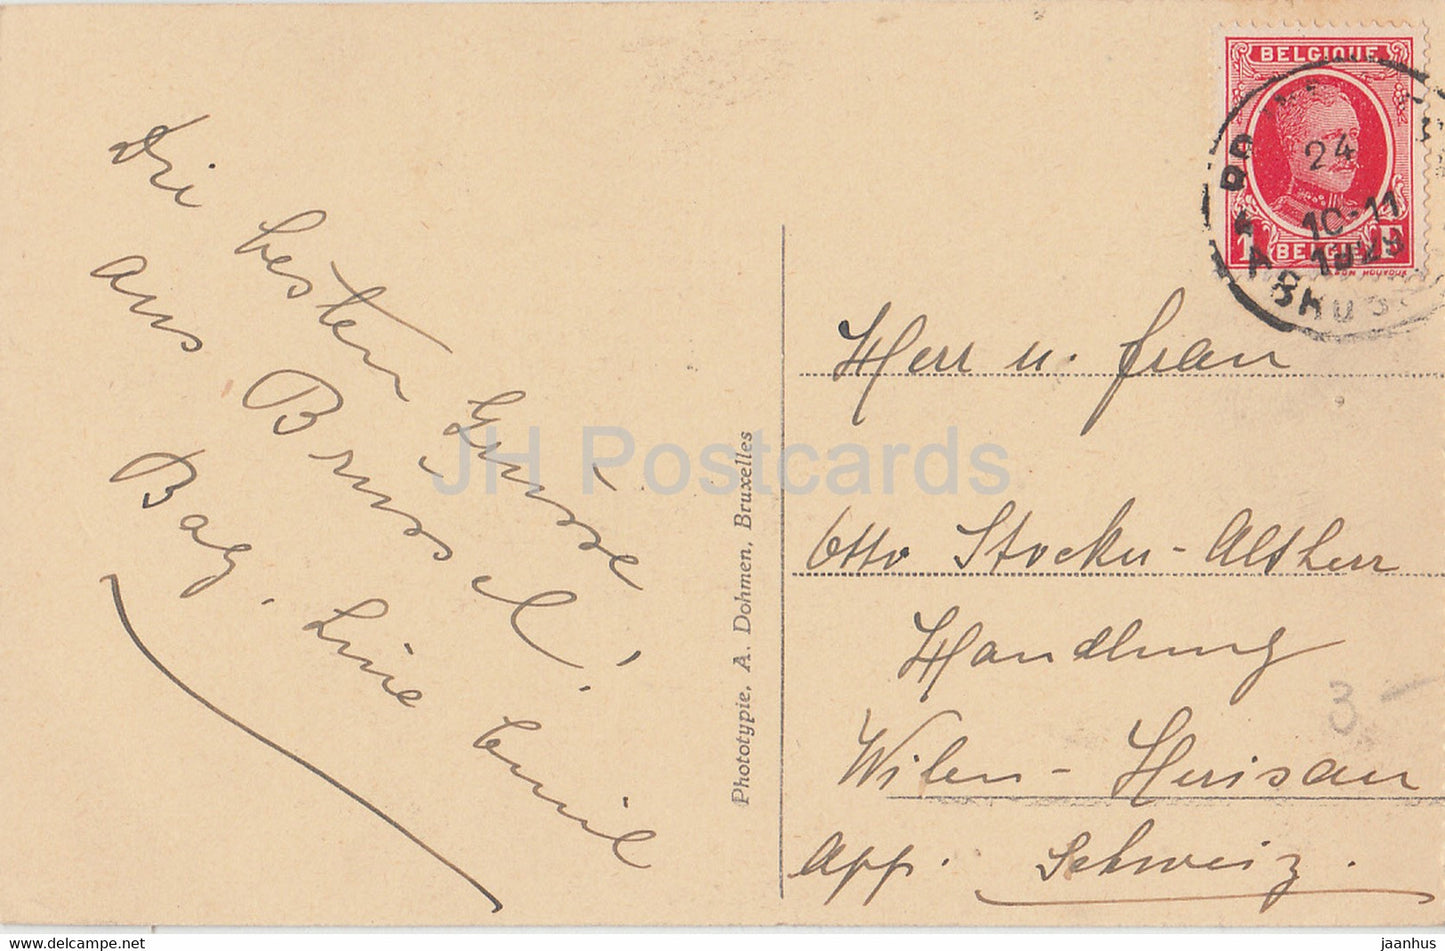 Die besten Grüsse
aus Brüssel!
Bag. Line Emil
Phototypie, A. Dohmen, Bruxelles
BELGIQUE
BELGIE
24
10-11
Herr u. Frau
Otto Stocker-Altherr
Handlung
Wilen - Herisau
App. Schweiz.
3.-
JH Postcards
jaanhus — https://www.delcampe.net